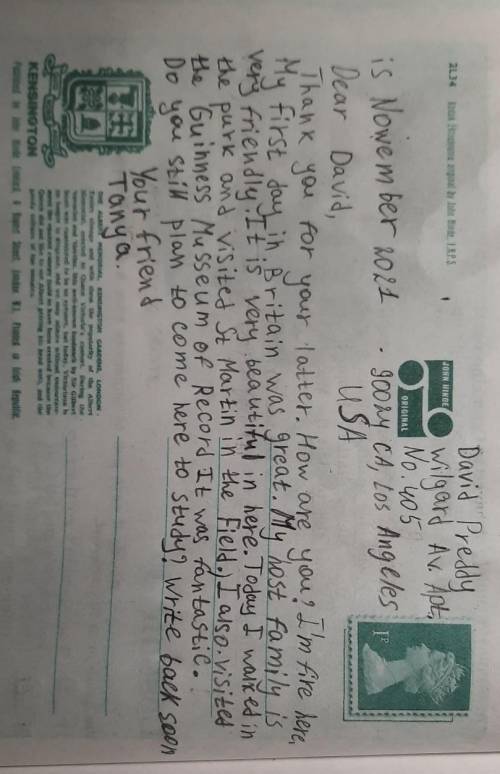 2L34
David Preddy
Wilgard Av. Apt.
No. 405
is Nowember 2021 . 90024 CA, Los Angeles
USA
JOHN HINDE
ORIGINAL
1P
Dear David,
Thank you for your latter. How are you? I'm fire here,
My first day in Britain was great. My host family is
very friendly. It is very beautiful in here. Today I walked in
the park and visited St Martin in the field.) I also visited
the Guihness Musseum of Record It was fantastic.
Do you still plan to come here to study? Write back soon
Your friend
Tanya.
KENSINGTON
THE ALBERT MEMORIAL, KENSINGTON GARDENS, LONDON.